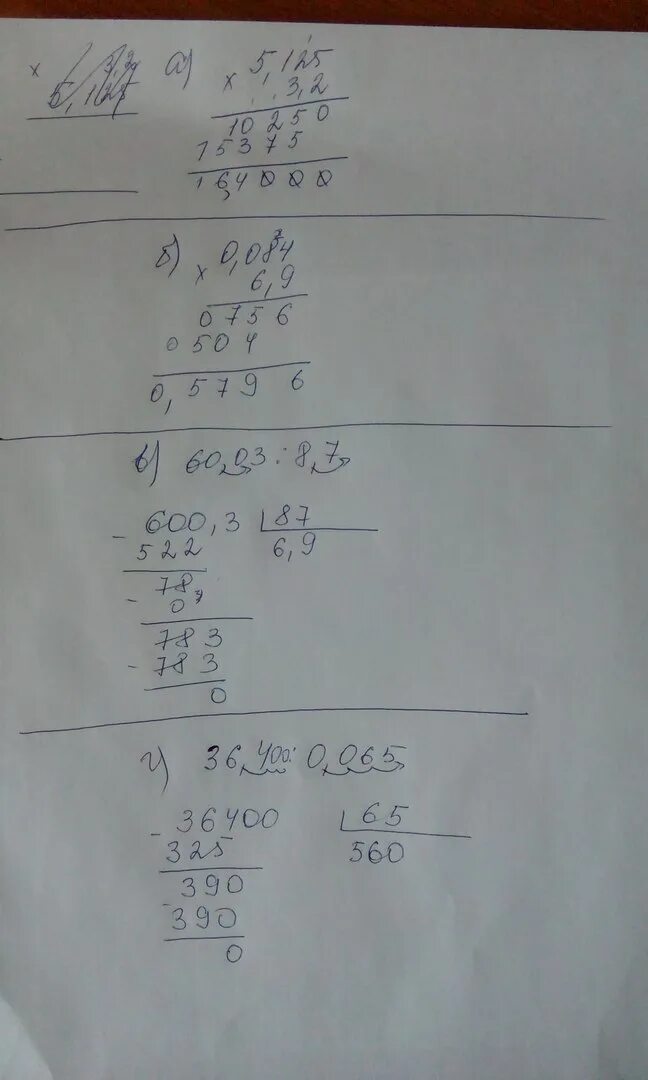 а) 5,125
× 3,2
10250
15375
16,4000
б) 0,084
× 6,9
0756
0504
0,5796
в) 60,03 : 8,7
600,3 | 87
- 522 6,9
78,
- 0
783
- 783
0
г) 36,400 : 0,065
- 36400 | 65
325 560
390
- 390
0